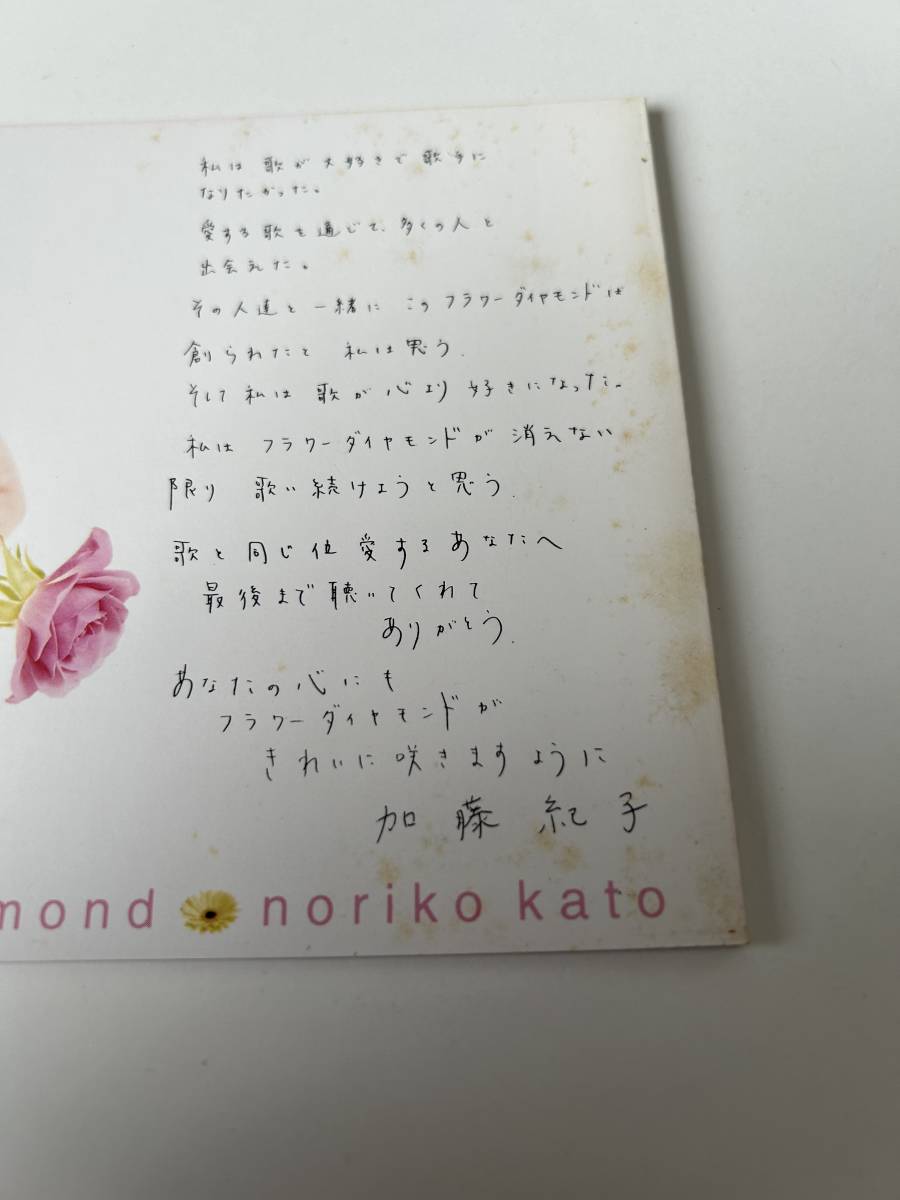 私は 歌が 大好きで 歌手に
なりたかった。
愛する歌を通じて、多くの人と
出会えた。
その人達と 一緒に このフラワーダイヤモンドは
創られたと 私は思う.
そして私は 歌が心より 好きになった。
私は フラワーダイヤモンドが 消えない
限り 歌い続けようと思う.
歌と同じ位 愛するあなたへ
最後まで聴いてくれて
ありがとう.
あなたの心にも
フラワーダイヤモンドが
きれいに咲きますように
加藤紀子
mond noriko kato